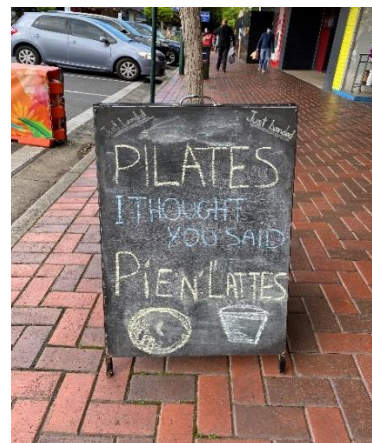 Just Landed
Just Landed
PILATES
I THOUGHT
YOU SAID
PIEN'LATTES